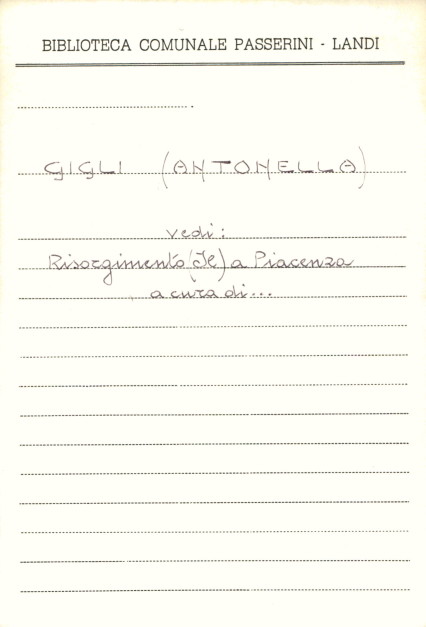 BIBLIOTECA COMUNALE PASSERINI - LANDI
GIGLI (ANTONELLA)
vedi:
Risorgimento (Il) a Piacenza
a cura di...